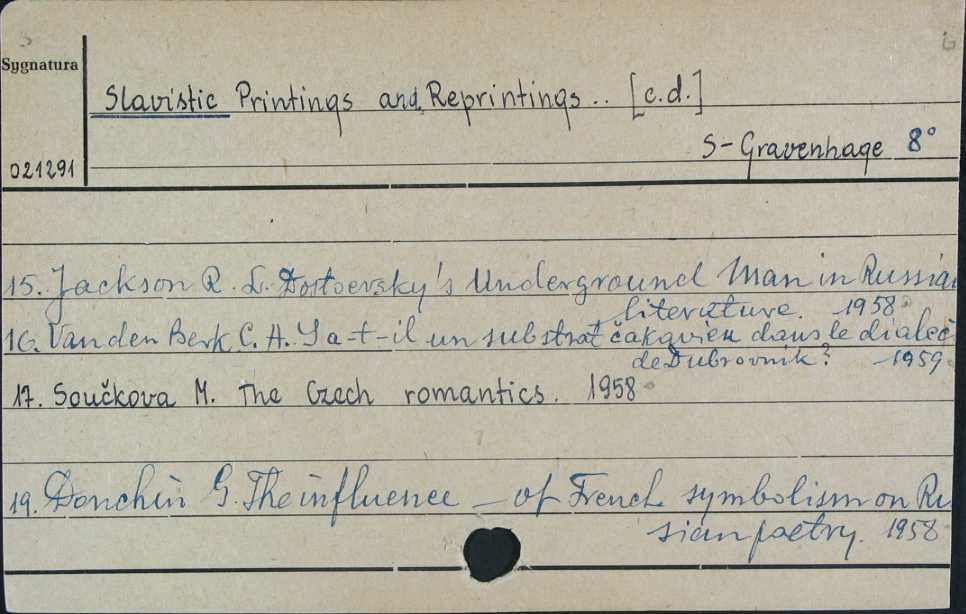 Sygnatura
Slavistic Printings and Reprintings .. [c.d.]
S-Gravenhage 8°
021291
15. Jackson R. L. Dostoevsky's Underground Man in Russian
literature. 1958
16. Van den Berk C. A. Y a-t-il un substrat čakavien dans le dialec
de Dubrovnik? 1959
17. Součkova M. The Czech romantics. 1958
19. Donchin G. The influence of French symbolism on Ru
sian poetry. 1958